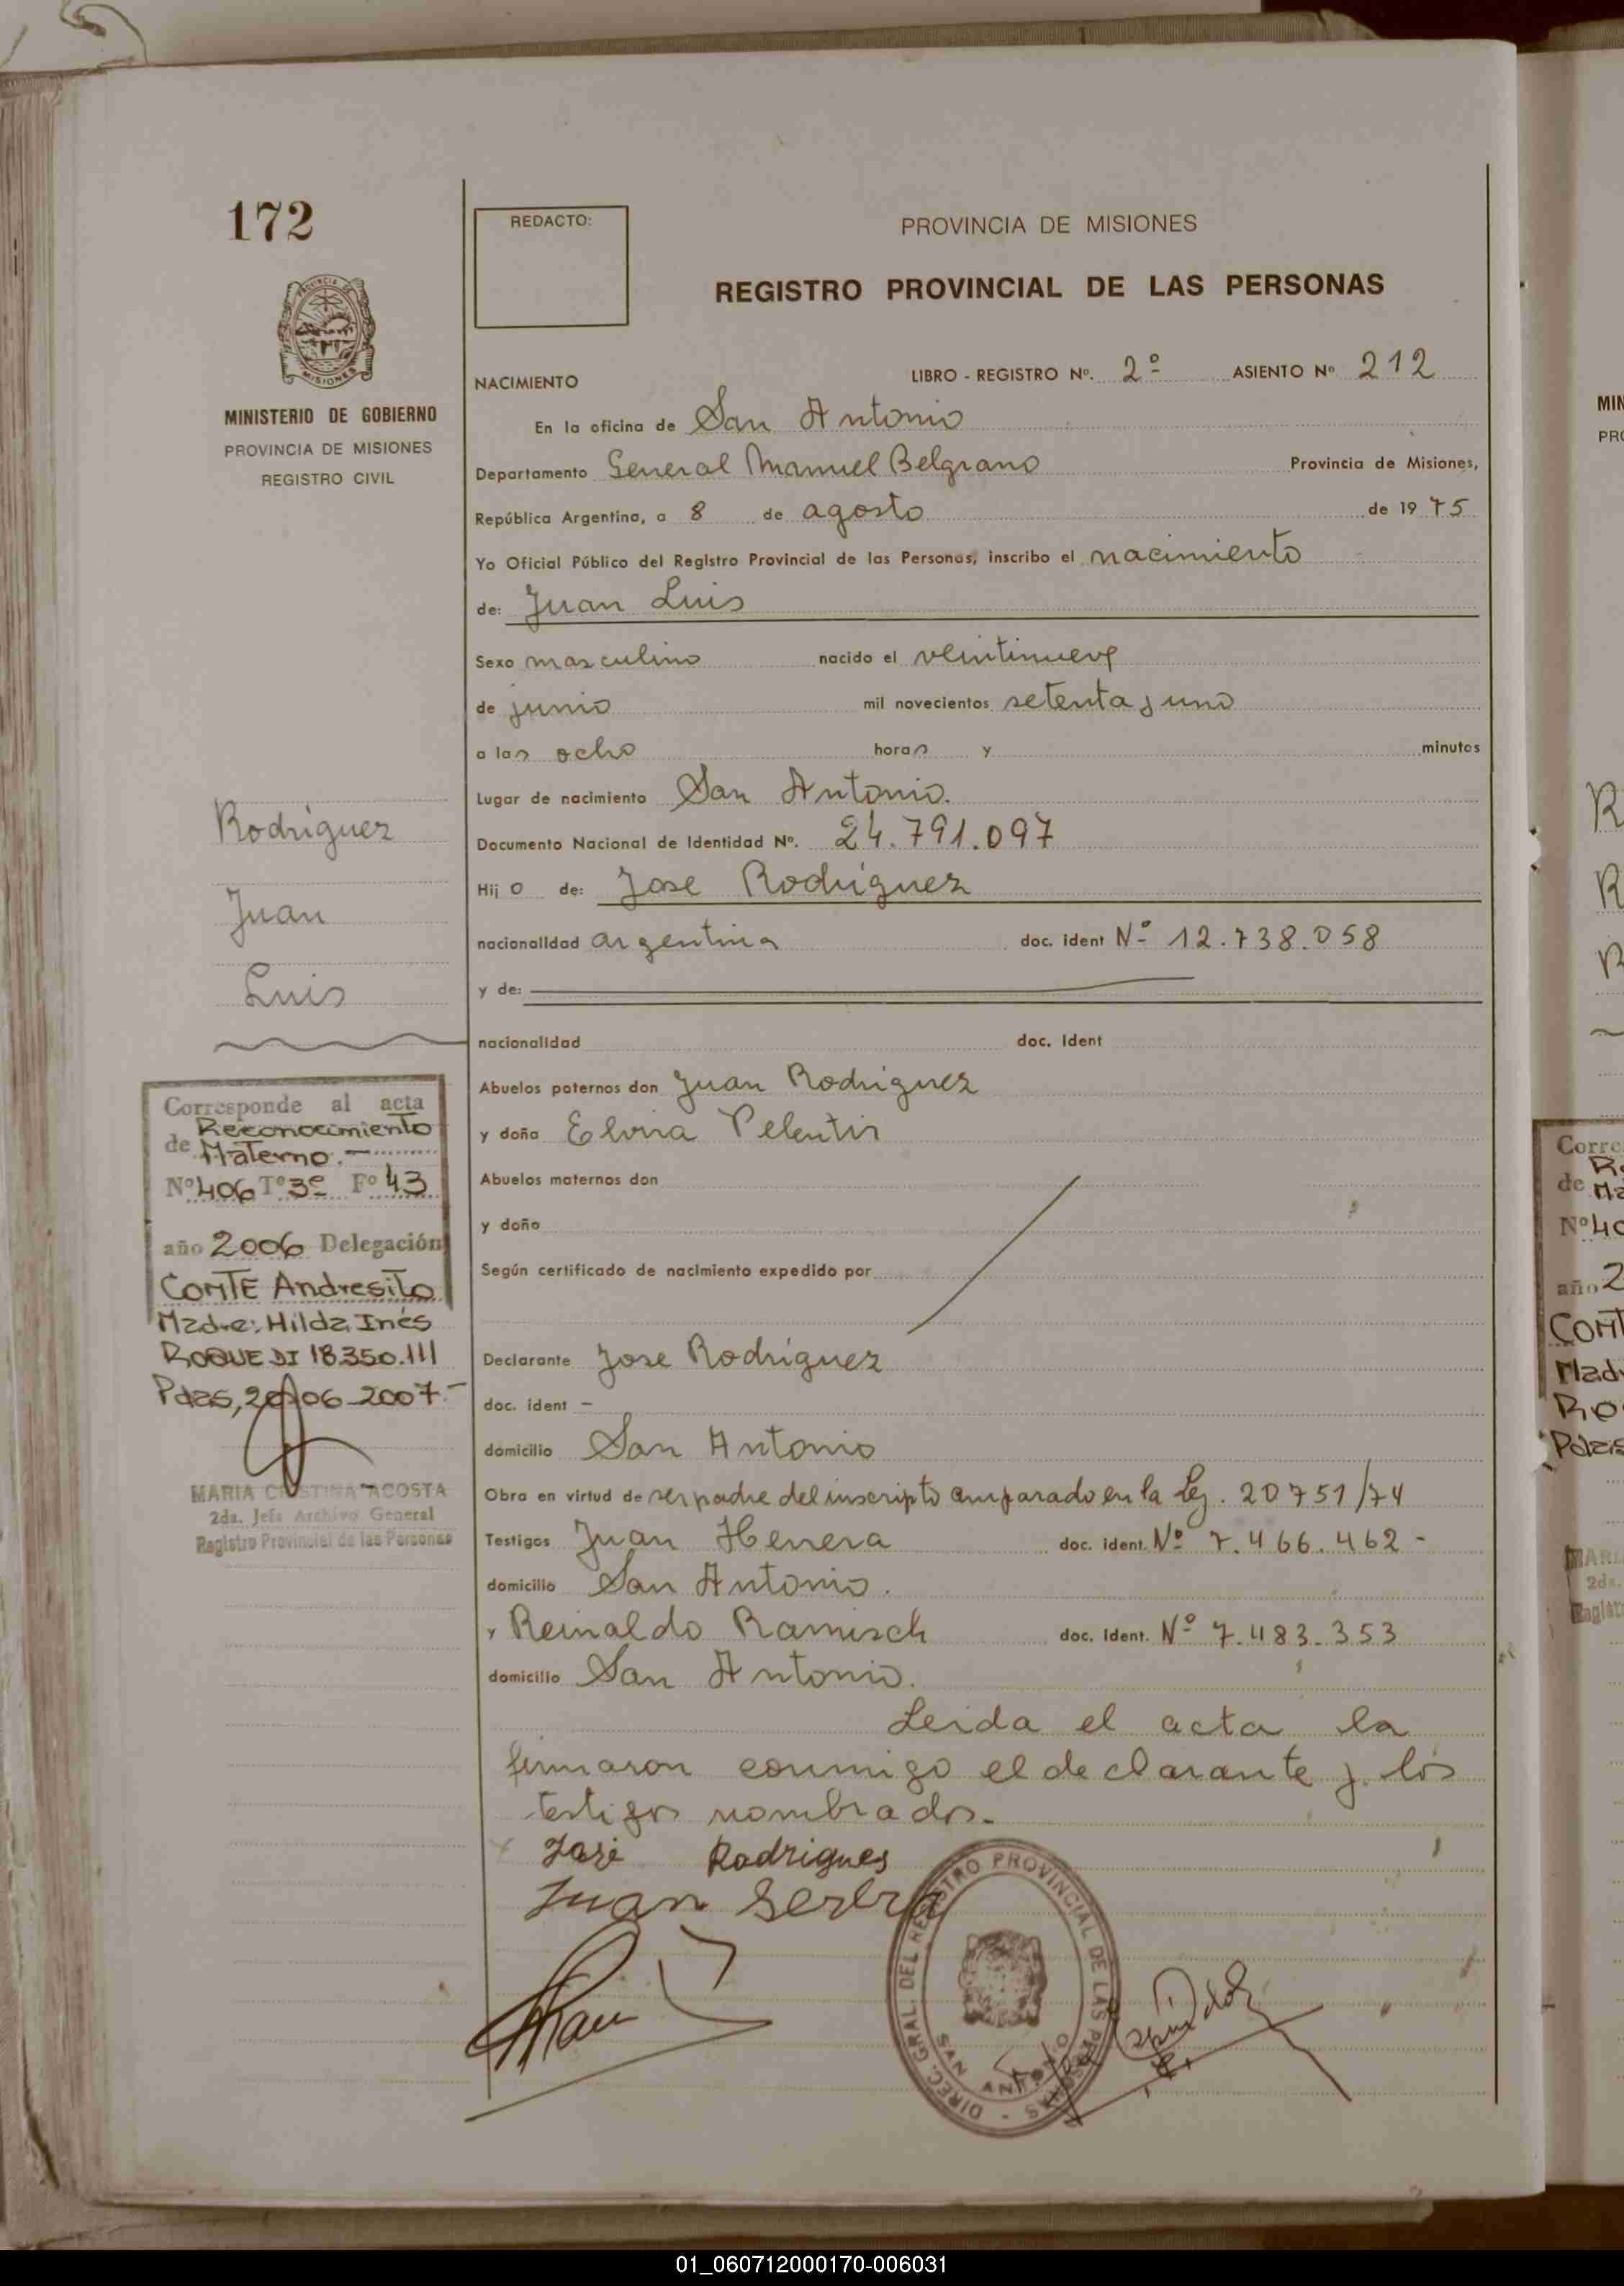 172
MINISTERIO DE GOBIERNO
PROVINCIA DE MISIONES
REGISTRO CIVIL
Rodriguez
Juan
Luis
Corresponde al acta
de Reconocimiento
Materno.-
Nº 406 Tº 3º Fº 43
año 2006 Delegación
COMTE Andresito
Madre: Hilda Inés
ROQUE DI 18.350.111
Pdas, 20/06-2007.-
MARIA CRISTINA ACOSTA
2da. Jefa Archivo General
Registro Provincial de las Personas
REDACTO:
PROVINCIA DE MISIONES
REGISTRO PROVINCIAL DE LAS PERSONAS
NACIMIENTO LIBRO - REGISTRO Nº. 2º ASIENTO Nº 212
En la oficina de San Antonio
Departamento General Manuel Belgrano Provincia de Misiones,
República Argentina, a 8 de agosto de 1975
Yo Oficial Público del Registro Provincial de las Personas, inscribo el nacimiento
de: Juan Luis
Sexo masculino nacido el veintinueve
de junio mil novecientos setenta y uno
a las ocho horas y minutos
Lugar de nacimiento San Antonio.
Documento Nacional de Identidad Nº. 24.791.097
Hijo de: Jose Rodriguez
nacionalidad argentina doc. ident Nº 12.738.058
y de:
nacionalidad doc. ident
Abuelos paternos don Juan Rodriguez
y doña Elvira
Abuelos maternos don
y doña
Según certificado de nacimiento expedido por
Declarante Jose Rodriguez
doc. ident -
domicilio San Antonio
Obra en virtud de ser padre del inscripto amparado en la Ley. 20751/74
Testigos Juan Herrera doc. ident. Nº 7.466.462-
domicilio San Antonio.
y Reinaldo Ramisch doc. ident. Nº 7.483.353
domicilio San Antonio.
Leida el acta la
firmaron conmigo el declarante y los
testigos nombrados.-
José Rodrigues
Juan
DIREC. GRAL. DEL REGISTRO PROVINCIAL DE LAS PERSONAS -
SAN ANTONIO
01_060712000170-006031